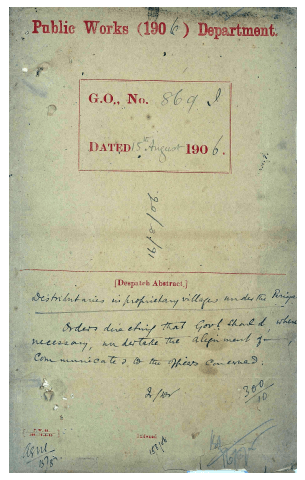 Public Works (1906) Department.
G.O., No. 869 I
DATED 15th August 1906.
16/8/06
[Despatch Abstract.]
Distributaries in proprietary villages under the
Orders directing that Govt should where
necessary, undertake the alignment of
Communicated to the Officers concerned.
300
10